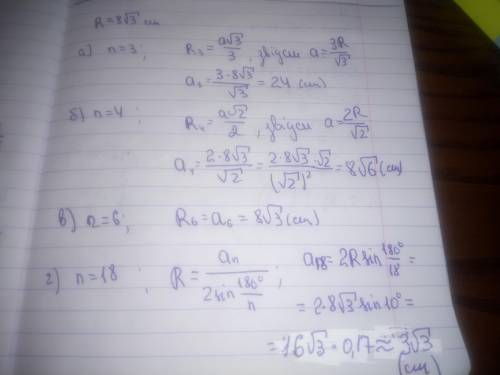 R = 8√3 см
а) n=3; R₃ = a√3/3, звідси a = 3R/√3
a₃ = 3·8√3/√3 = 24 (см)
б) n=4; R₄ = a√2/2, звідси a = 2R/√2
a₄ = 2·8√3/√2 = 2·8√3·√2/(√2)² = 8√6 (см)
в) n=6; R₆ = a₆ = 8√3 (см)
г) n=18; R = aₙ/(2sin 180°/n); a₁₈ = 2R sin 180°/18 =
= 2·8√3 sin10° =
= 16√3 · 0,17 ≈ 3√3
(см)